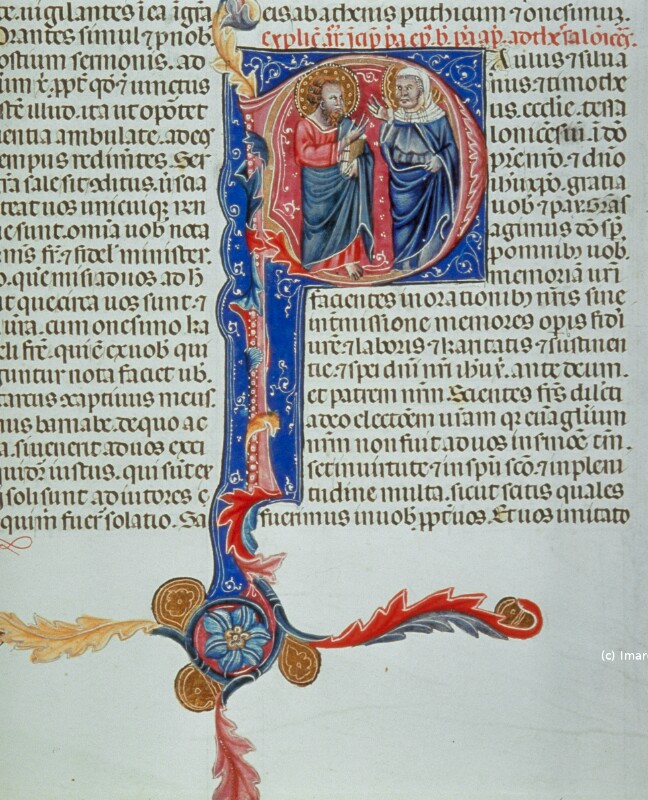 te. uigilantes i ea i gr̄a
Orantes simul ⁊ p nob
ostium sermonis. ad
um x̄. ppt̄ qd̄ ⁊ uinctus
illud. ita ut oportet
ientia ambulate. ad eos
empus redimentes. Ser
tia sale sit 9ditus. ut scia
teat uos unicuiq; rn̄
e sunt. omia uob nota
mis fr̄. ⁊ fidel minister.
o. que misi ad uos ad h̄
ut que circa uos sunt. ⁊
ura. cum onesimo ka
eli fr̄e. qui ē ex uob qui
guntur nota faciet ub.
tarcus 9captiuus meus.
nus barnabe. de quo ac
uenerit ad uos exci
iustus. qui sūt ex
i soli sunt adiutores
quim̄ fuer̄ solatio. Sa
eis ab athenis p titchicum ⁊ onesimuz.
explic̄ ar̄. icip̄ pa ep̄. b. pa. ap̄. ad thesalonicēs.
Aulus ⁊ silua
nus ⁊ timothe
us. ecclie. tessa
lonicēsiū. i dō
pre nr̄o. ⁊ dn̄o
ihu xp̄o. gratia
uob ⁊ pax. Gr̄as
agimus dō sp̄.
p omnib; uob.
memoriā urī
facientes in orationib; nr̄is sine
int̄missione memores opīs fidī
ur̄e ⁊ laboris ⁊ karitatis ⁊ sustinen
tie. ⁊ spei dn̄i nr̄i ihu x̄. ante deum.
et patrem nr̄m. Scientes fr̄s dilc̄ti
a deo electōem ur̄am. q̄ euāglium
nr̄m non fuit ad uos in smōe tm̄.
set in uirtute ⁊ in sp̄u sc̄o. ⁊ in pleni
tudine multa. sicut scitis quales
fuerimus in uob ppt̄ uos. Et uos imitato
(c) Imar